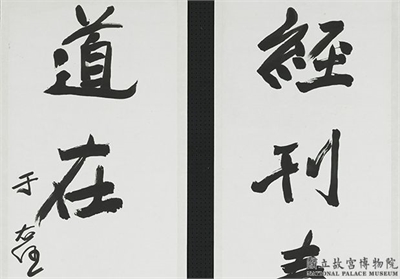 經刊
道在
于右任
國立故宮博物院
NATIONAL PALACE MUSEUM